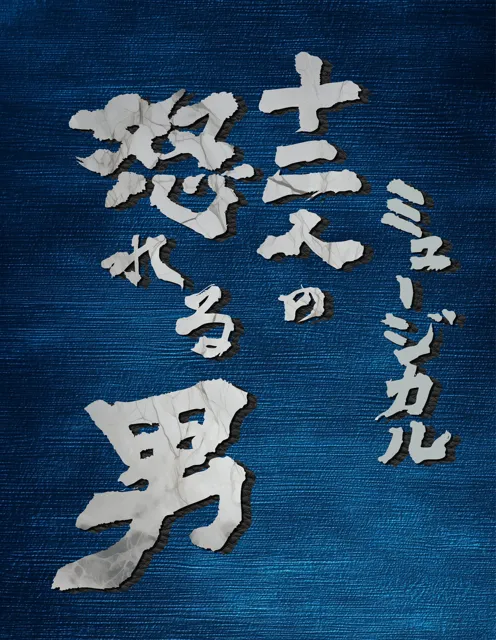 ミュージカル
十二人の
怒れる
男